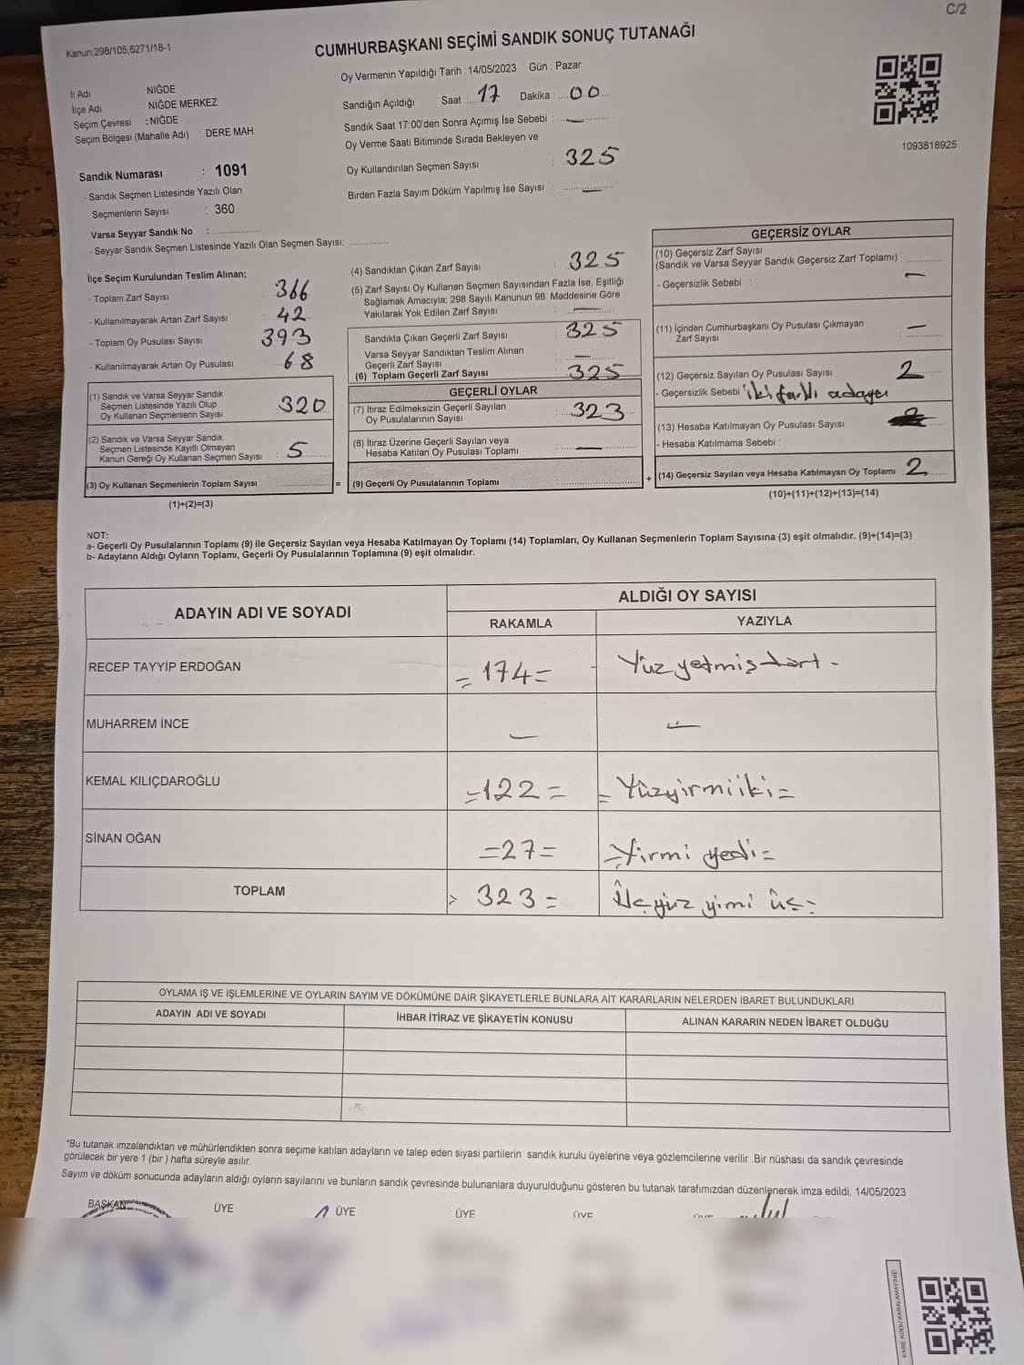 C/2
Kanun:298/105,6271/18-1
CUMHURBAŞKANI SEÇİMİ SANDIK SONUÇ TUTANAĞI
İl Adı NİĞDE
İlçe Adı NİĞDE MERKEZ
Seçim Çevresi :NİĞDE
Seçim Bölgesi (Mahalle Adı) DERE MAH
Oy Vermenin Yapıldığı Tarih :14/05/2023 Gün : Pazar
Sandığın Açıldığı Saat 17 Dakika 00
Sandık Saat 17:00'den Sonra Açımış İse Sebebi —
Oy Verme Saati Bitiminde Sırada Bekleyen ve
Oy Kullandırılan Seçmen Sayısı : 325
Birden Fazla Sayım Döküm Yapılmış İse Sayısı —
1093818925
Sandık Numarası : 1091
- Sandık Seçmen Listesinde Yazılı Olan
Seçmenlerin Sayısı : 360
Varsa Seyyar Sandık No :
- Seyyar Sandık Seçmen Listesinde Yazılı Olan Seçmen Sayısı:
İlçe Seçim Kurulundan Teslim Alınan;
- Toplam Zarf Sayısı 366
- Kullanılmayarak Artan Zarf Sayısı 42
- Toplam Oy Pusulası Sayısı 393
- Kullanılmayarak Artan Oy Pusulası 68
(1) Sandık ve Varsa Seyyar Sandık
Seçmen Listesinde Yazılı Olup
Oy Kullanan Seçmenlerin Sayısı 320
(2) Sandık ve Varsa Seyyar Sandık
Seçmen Listesinde Kayıtlı Olmayan
Kanun Gereği Oy Kullanan Seçmen Sayısı 5
(3) Oy Kullanan Seçmenlerin Toplam Sayısı
(1)+(2)=(3)
(4) Sandıktan Çıkan Zarf Sayısı 325
(5) Zarf Sayısı Oy Kullanan Seçmen Sayısından Fazla İse, Eşitliği
Sağlamak Amacıyla; 298 Sayılı Kanunun 98. Maddesine Göre
Yakılarak Yok Edilen Zarf Sayısı —
Sandıkta Çıkan Geçerli Zarf Sayısı 325
Varsa Seyyar Sandıktan Teslim Alınan
Geçerli Zarf Sayısı —
(6) Toplam Geçerli Zarf Sayısı 325
GEÇERLİ OYLAR
(7) İtiraz Edilmeksizin Geçerli Sayılan
Oy Pusulasının Sayısı 323
(8) İtiraz Üzerine Geçerli Sayılan veya
Hesaba Katılan Oy Pusulası Toplamı —
= (9) Geçerli Oy Pusulalarının Toplamı +
GEÇERSİZ OYLAR
(10) Geçersiz Zarf Sayısı
(Sandık ve Varsa Seyyar Sandık Geçersiz Zarf Toplamı)
- Geçersizlik Sebebi : —
(11) İçinden Cumhurbaşkanı Oy Pusulası Çıkmayan
Zarf Sayısı —
(12) Geçersiz Sayılan Oy Pusulası Sayısı 2
- Geçersizlik Sebebi iki farklı adaya
(13) Hesaba Katılmayan Oy Pusulası Sayısı
- Hesaba Katılmama Sebebi :
(14) Geçersiz Sayılan veya Hesaba Katılmayan Oy Toplamı 2
(10)+(11)+(12)+(13)=(14)
NOT:
a- Geçerli Oy Pusulalarının Toplamı (9) ile Geçersiz Sayılan veya Hesaba Katılmayan Oy Toplamı (14) Toplamları, Oy Kullanan Seçmenlerin Toplam Sayısına (3) eşit olmalıdır. (9)+(14)=(3)
b- Adayların Aldığı Oyların Toplamı, Geçerli Oy Pusulalarının Toplamına (9) eşit olmalıdır.
ADAYIN ADI VE SOYADI ALDIĞI OY SAYISI
RAKAMLA YAZIYLA
RECEP TAYYİP ERDOĞAN =174= - Yüz yetmiş dört -
MUHARREM İNCE — —
KEMAL KILIÇDAROĞLU =122= = Yüzyirmiiki =
SİNAN OĞAN =27= =Yirmi yedi=
TOPLAM 323= Üçyüz yimi üç=
OYLAMA İŞ VE İŞLEMLERİNE VE OYLARIN SAYIM VE DÖKÜMÜNE DAİR ŞİKAYETLERLE BUNLARA AİT KARARLARIN NELERDEN İBARET BULUNDUKLARI
ADAYIN ADI VE SOYADI İHBAR İTİRAZ VE ŞİKAYETİN KONUSU ALINAN KARARIN NEDEN İBARET OLDUĞU
"Bu tutanak imzalandıktan ve mühürlendikten sonra seçime katılan adayların ve talep eden siyasi partilerin sandık kurulu üyelerine veya gözlemcilerine verilir .Bir nüshası da sandık çevresinde
görülecek bir yere 1 (bir ) hafta süreyle asılır.
Sayım ve döküm sonucunda adayların aldığı oyların sayılarını ve bunların sandık çevresinde bulunanlara duyurulduğunu gösteren bu tutanak tarafımızdan düzenlenerek imza edildi. 14/05/2023
BAŞKAN ÜYE ÜYE ÜYE ÜYE